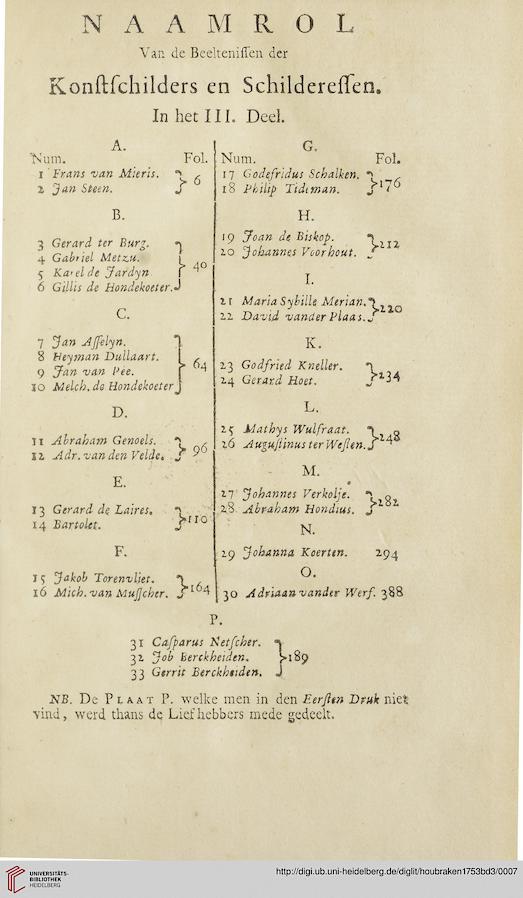 NAAMROL
Van de Beeltenissen der
Konstschilders en Schilderessen.
In het III. Deel.
A.
Num. Fol.
1 Frans van Mieris.
2 Jan Steen. } 6
B.
3 Gerard ter Burg.
4 Gabriel Metzu.
5 Karel de Jardyn
6 Gillis de Hondekoeter. } 40
C.
7 Jan Asselyn.
8 Heyman Dullaart.
9 Jan van Pee.
10 Melch. de Hondekoeter } 64
D.
11 Abraham Genoels.
12 Adr. van den Velde. } 96
E.
13 Gerard de Laires.
14 Bartolet. } 110
F.
15 Jakob Torenvliet.
16 Mich. van Musscher. } 164
G.
Num. Fol.
17 Godefridus Schalken.
18 Philip Tideman. } 176
H.
19 Joan de Biskop.
20 Johannes Voorhout. } 212
I.
21 Maria Sybille Merian.
22 David vander Plaas. } 220
K.
23 Godfried Kneller.
24 Gerard Hoet. } 234
L.
25 Mathys Wulfraat.
26 Augustinus ter Westen. } 248
M.
27 Johannes Verkolje.
28 Abraham Hondius. } 282
N.
29 Johanna Koerten. 294
O.
30 Adriaan vander Werf. 388
P.
31 Casparus Netscher.
32 Job Berckheiden.
33 Gerrit Berckheiden. } 189
NB. De PLAAT P. welke men in den Eersten Druk niet
vind, werd thans de Liefhebbers mede gedeelt.
UNIVERSITÄTS-
BIBLIOTHEK
HEIDELBERG
http://digi.ub.uni-heidelberg.de/diglit/houbraken1753bd3/0007